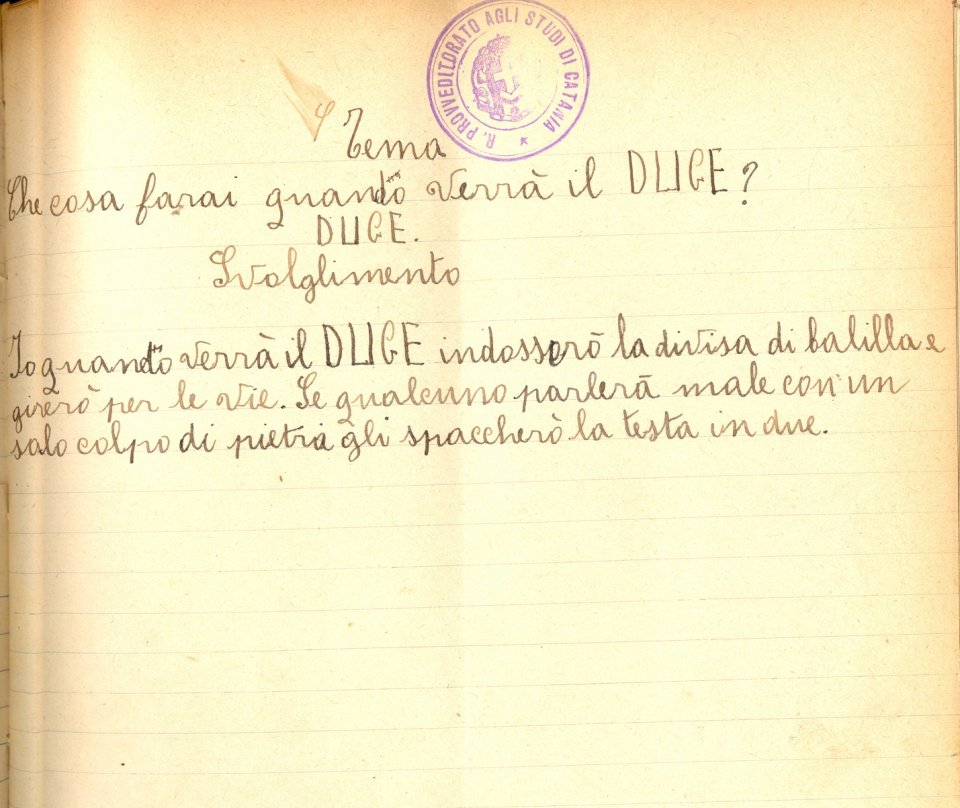 R. PROVVEDITORATO AGLI STUDI DI CATANIA
Tema
Che cosa farai quando verrà il DUCE?
DUCE.
Svolglimento
Io quando verrà il DUCE indosserò la divisa di balilla e
girerò per le vie. Se qualcuno parlerà male con un
salo colpo di pietra gli spaccherò la testa in due.